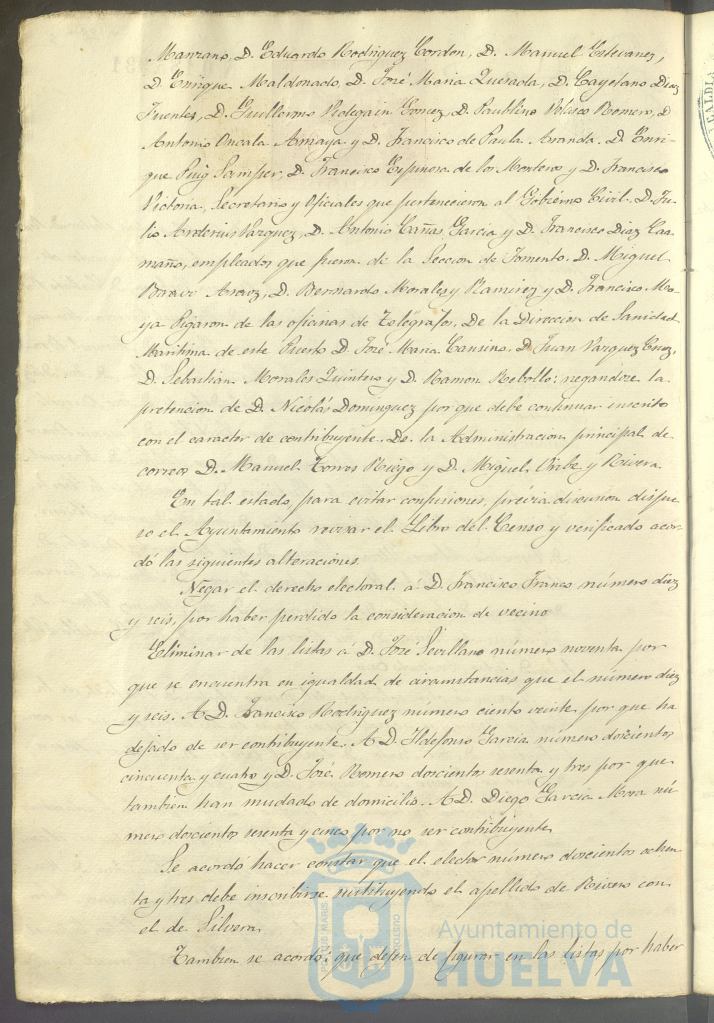 Manzano, D. Eduardo Rodriguez Cordon, D. Manuel Estevanez,
D. Enrique Maldonado, D. José Maria Quesada, D. Cayetano Diaz
Fuentes, D. Guillermo Videgain Gomez, D. Paublino Velasco Romero, D.
Antonio Oncala Amaya y D. Francisco de Paula Aranda. D. Enri-
que Puig Samper, D. Francisco Espinosa de los Monteros y D. Francisco
Victoria, Secretario y Oficiales que pertenecieron al Gobierno Civil. D. Ju-
lio Arderius Vazquez, D. Antonio Cañas Garcia y D. Francisco Diaz Caa-
maño, empleados que fueron de la Seccion de Fomento. D. Miguel
Bravo D. Bernardo Morales y Ramirez y D. Francisco Mo-
ya de las oficinas de Telégrafos. De la Direccion de Sanidad
Maritima de este Puerto D. José Maria Cansino, D. Juan Vazquez Cruz,
D. Sebastian Morales Quintero y D. Ramon Rebollo: negandose la
pretencion de D. Nicolás Dominguez por que debe continuar inscrito
con el caracter de contribuyente. De la Administracion principal de
correos D. Manuel Torres Riego y D. Miguel Uribe y Rivera.
En tal estado, para evitar confusiones, prévia discusion dispu-
so el Ayuntamiento revisar el Libro del Censo y verificado acor-
dó las siguientes alteraciones.
Negar el derecho electoral á D. Francisco Franco número diez
y seis, por haber perdido la consideracion de vecino
Eliminar de las listas á D. José Sevillano número noventa por
que se encuentra en igualdad de circunstancias que el número diez
y seis. A D. Francisco Rodriguez número ciento veinte por que ha
dejado de ser contribuyente. A D. Ildefonso Garcia número doscientos
cincuenta y cuatro y D. José Romero doscientos sesenta y tres por que
tambien han mudado de domicilio. A D. Diego Garcia Mora nú-
mero doscientos sesenta y cinco por no ser contribuyente.
Se acordó hacer constar que el elector número doscientos ochen-
ta y tres debe inscribirse sustituyendo el apellido de Rivero con
el de Silvera.
Tambien se acordó: que dejen de figurar en las listas por haber
Ayuntamiento de
HUELVA